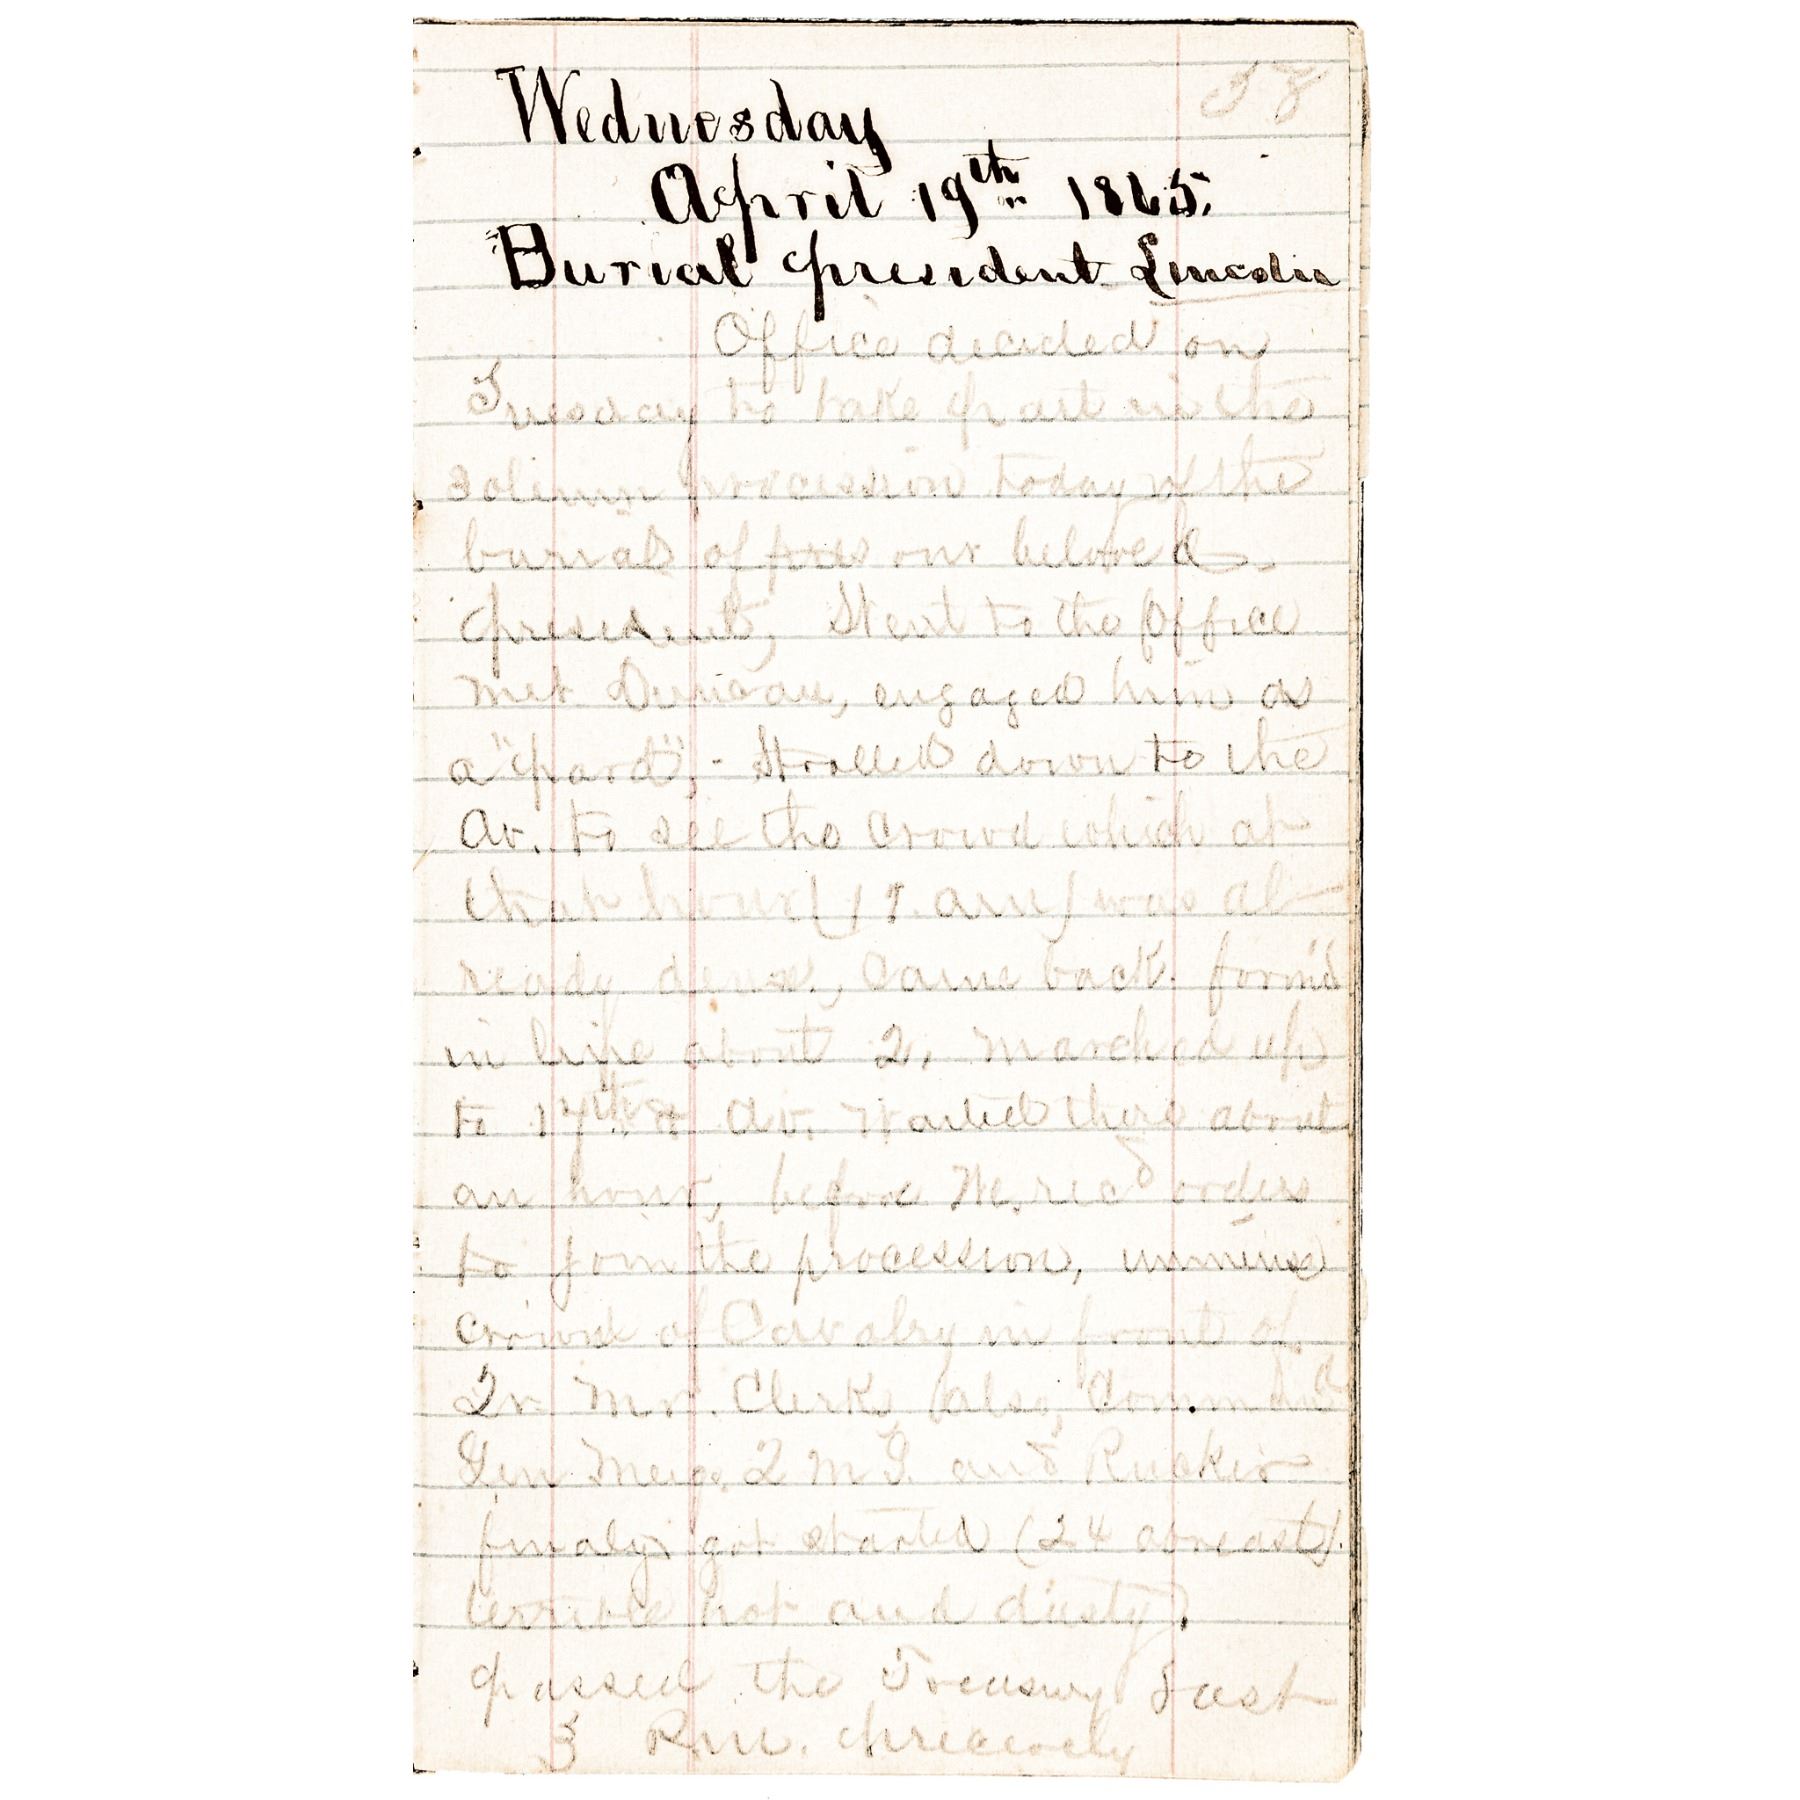 58
Wednesday
April 19th 1865.
Burial president Lincoln
Office decided on
Tuesday to take part in the
solemn procession today of the
burial of pres our beloved
president, Went to the Office
met Duncan, engaged him as
a "pard", - Strolled down to the
Av. to see the crowd which at
that hour (11. am) was al-
ready dense, Came back form'd
in line about 2, marched up
to 17th st Av. Waited there about
an hour, before We, recd orders
to join the procession, immense
crowd of Cavalry in front of
Qr. Mr. Clerks (also,
Gen Meigs Q M G. and Rucker
finaly got started (24 abreast).
terrible hot and dusty,
passed the Treasury Just
3 P.m. precisely